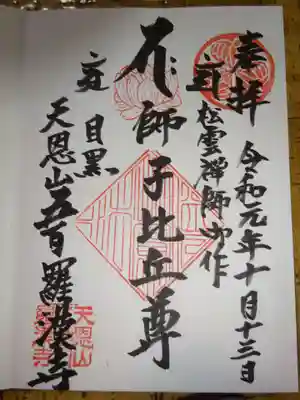 奉拝
令和元年十月十三日
松雲禅師御作
師子比丘尊
目黒
天恩山五百羅漢寺
天恩山